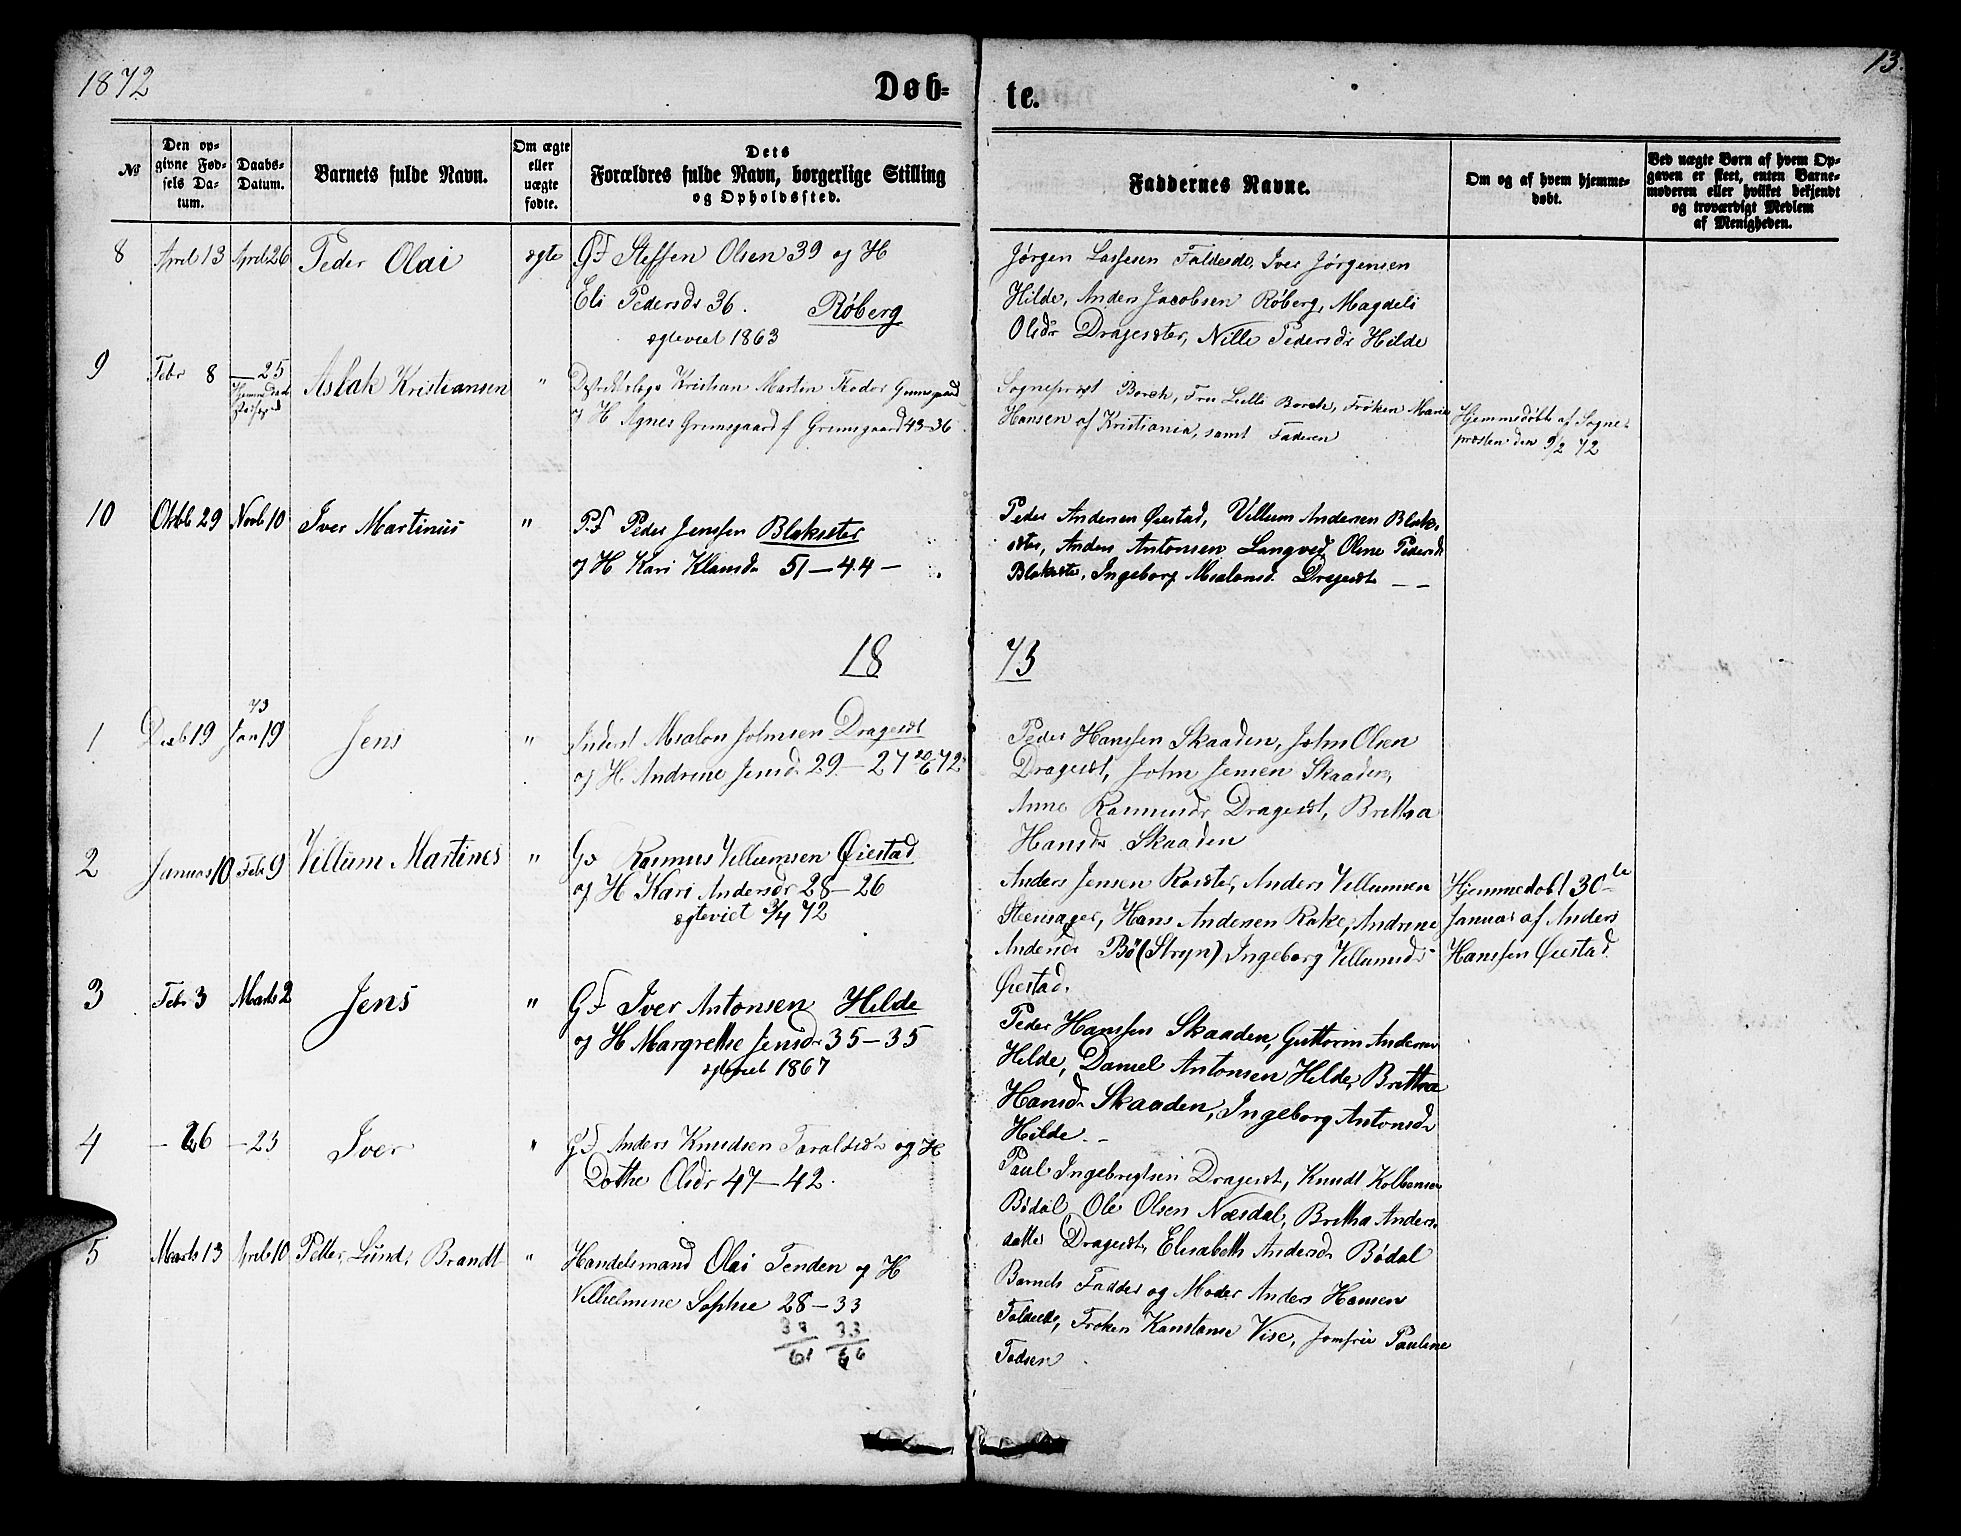 1872
Døb-
te.
13.
№
Den op-
givne Fød-
sels Da-
tum.
Daabs-
Datum.
Barnets fulde Navn.
Om ægte
eller
uægte
fødte.
Dets
Forældres fulde Navn, borgerlige Stilling
og Opholdssted.
Faddernes Navne.
Om og af hvem hjemme-
døbt.
Ved uægte Børn af hvem Op-
gaven er skeet, enten Barne-
moderen eller hvilket bekjendt
og troværdigt Medlem
af Menigheden.
8 April 13 April 26 Peder Olai ægte GF Steffen Olsen 39 og H
Eli Pedersdr 36. Røberg
ægteviet 1863
Jørgen Lassesen Faldesde, Iver Jørgensen
Hilde, Anders Jacobsen Røberg, Magdeli
Olsdr Dragesæter, Nille Pedersdr Hilde
9 Febr 8 — 25 Aslak Kristiansen " Kristian Martin Fredor
og H Agnes Grimsgaard f Grimsgaard 43-36
Sogneprest Borch, Fru Lulli Borch, Frøken Marie
Hansen af Kristiania, samt Faderen
Hjemmedøbt af Sogne-
præsten den 9/2 72
10 Oktb 29 Novb 10 Iver Martinus " P.F Peder Jenssen Blaksæter
og H Kari Klausdr 51 — 44 —
Peder Andersen Øiestad, Villum Andersen Blak-
sæter, Anders Antonsen Langved, Oline Pedersdr
Blaksæter, Ingeborg Absalonsd. Dragesæt — —
18 73
1 Decb 19 73 Jan 19 Jens " Inderst Absalon Johnsen Dragesæt
og H Andrine Jensd. 29 — 27 20/6 72
Peder Hanssen Skaaden, John Olsen
Dragesæt, John Jensen Skaaden,
Anne Rasmusdr Dragesæt, Brittha
Hansdr Skaaden
2 Januar 10 Febr 9 Villum Martines " Gb Rasmus Villumsen Øiestad
og H Kari Andersdr 28 — 26
ægteviet 3/4 72
Anders Jensen Anders Villumsen
Steensager, Hans Andersen Rake, Andrine
Andersdr Bø (Stryn) Ingeborg Villumsdr
Øiestad.
Hjemmedøbt 30te
Januar af Anders
Hanssen Øiestad
3 Febr 3 Marts 2 Jens " GF Iver Antonsen Hilde
og H Margrethe Jensdr 35 — 35
ægteviet 1867
Peder Hanssen Skaaden, Guttorm Andersen
Hilde, Daniel Antonsen Hilde, Brittha
Hansdr Skaaden, Ingeborg Antonsdr
Hilde. —
4 — 26 — 23 Iver " GF Anders Knudsen og H
Dorthe Olsdr 47 — 42.
Paul Ingebrigtsen Dragesæt, Knudt Kolbensen
Bødal, Ole Olsen Næsdal, Brittha Anders-
datter Dragesæt, Elisabeth Andersdr Bødal
5 Marts 13 April 10 Petter Lund Brandt " Handelsmand Olai Tenden og H
Vilhelmine Sophie 28 — 33
33 33
61 66
Barnets Fadder og Moder Anders Hansen
Faldesde, Frøken Konstanse Vise, Jomfru Pauline
Todsen